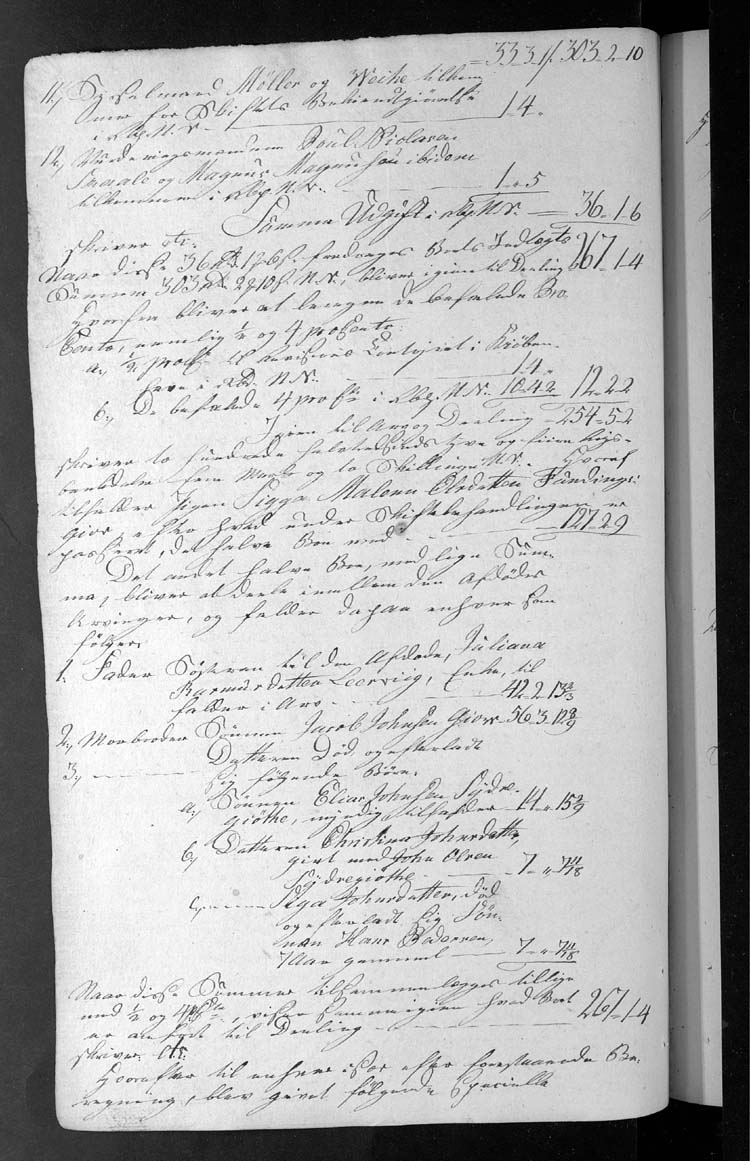 33-3-1/. 303-2-10
11, Sysselmand Møller og Weihe tilkom-
mer for Skiftets Bekiendtgiørelse
i Rbp. N.V. 1-4-
12, Vurderingsmændene Poul Niclasen
og Magnus Magnusen ibidem
tilkommer i Rbp. N.V. 1-"-5
Summa Udgift i Rbp. N.V. 36-1-6
skriver etc.
Naar disse 36 Rbd 1 6 s. fradrages Boets Indtægts
Summa 303 Rbd 2 10 s. N.V., bliver igien til Deeling 267-1-4
Hvorfra bliver at beregne de befalede Pro
Cento, nemlig ½ og 4 pro Cento:
a, ½ proCt til i Kiøben-
havn i Rbd. N.V. 1-4-
b, De befalede 4 pro Ct i Rbp. N.V. 10-4-2 12-2-2
Igien til Arv og Deeling 254-5-2
skriver to hundrede halvtredsinds tyve og fiire Rigs-
bankdaler fem Mark og to Skilling N.V. Hvoraf
tilfalder Pigen Sigga Malena Olsdatter Fundings-
giov efter hvad under Skiftebehandlingen er
passeret, det halve Boe med 127-2-9
Det andet halve Boe, med lige Sum-
ma, bliver at deele imellem den Afdødes
Arvinger, og falder da paa enhver som
følger
1, Fader Søsteren til den Afdøde, Juliana
Rasmusdatter Leervig, Enke, til-
falder i Arv 42-2-13⅔
2, Morbroder Sønnen Jacob Johnsen Giov 56-3-12 8/9
3, Datteren Død, og efterladt
sig følgende Børn.
a, Sønnen Elias Johnsen Sydre-
giøthe, myndig, tilfalder 14-"-15 2/9
b, Datteren Christina Johnsdatter,
gift med John Olsen
Sydregiøthe 7-"-7 11/18
c, Johnsdatter, død
og efterladt sig Søn-
nen Hans Pedersen,
7 Aar gammel 7-"-7 11/18
Naar disse Summer tilsammenlægges tillige
med ½ og 4 pCto, viser Summa igien hvad Boet
er anført til Deeling 267-1-4
skriver etc.
Hvorefter til enhver især efter forestaaende Be-
regning, blev givet følgende Specielle